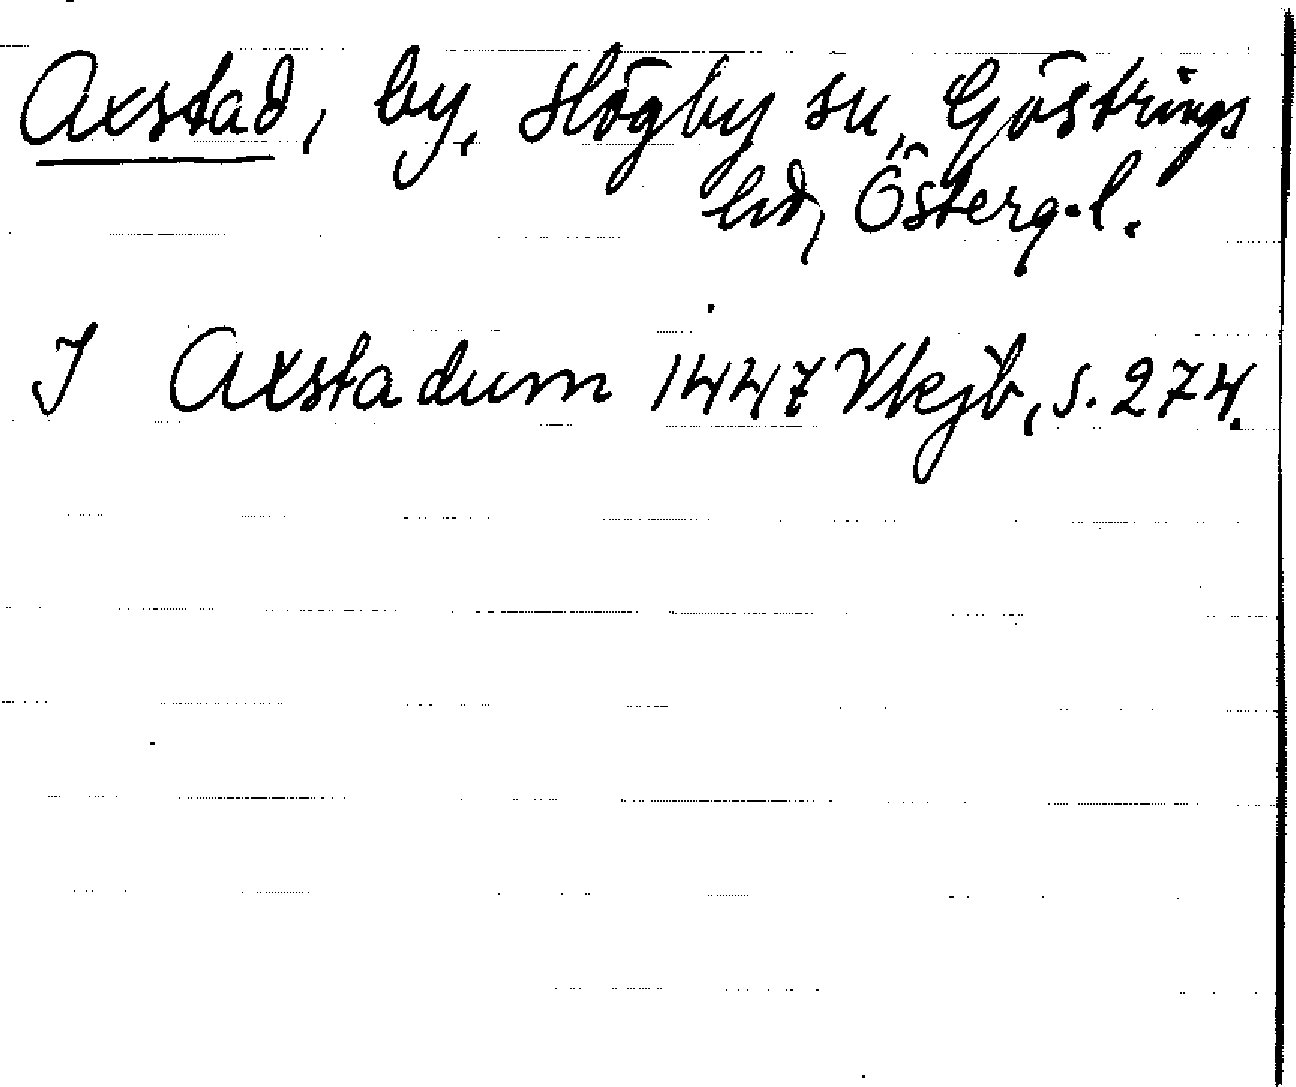 Axstad, by, Högby sn, Göstrings
hd, Österg.l.
I Axstadum 1447 Vkjb, s. 274.